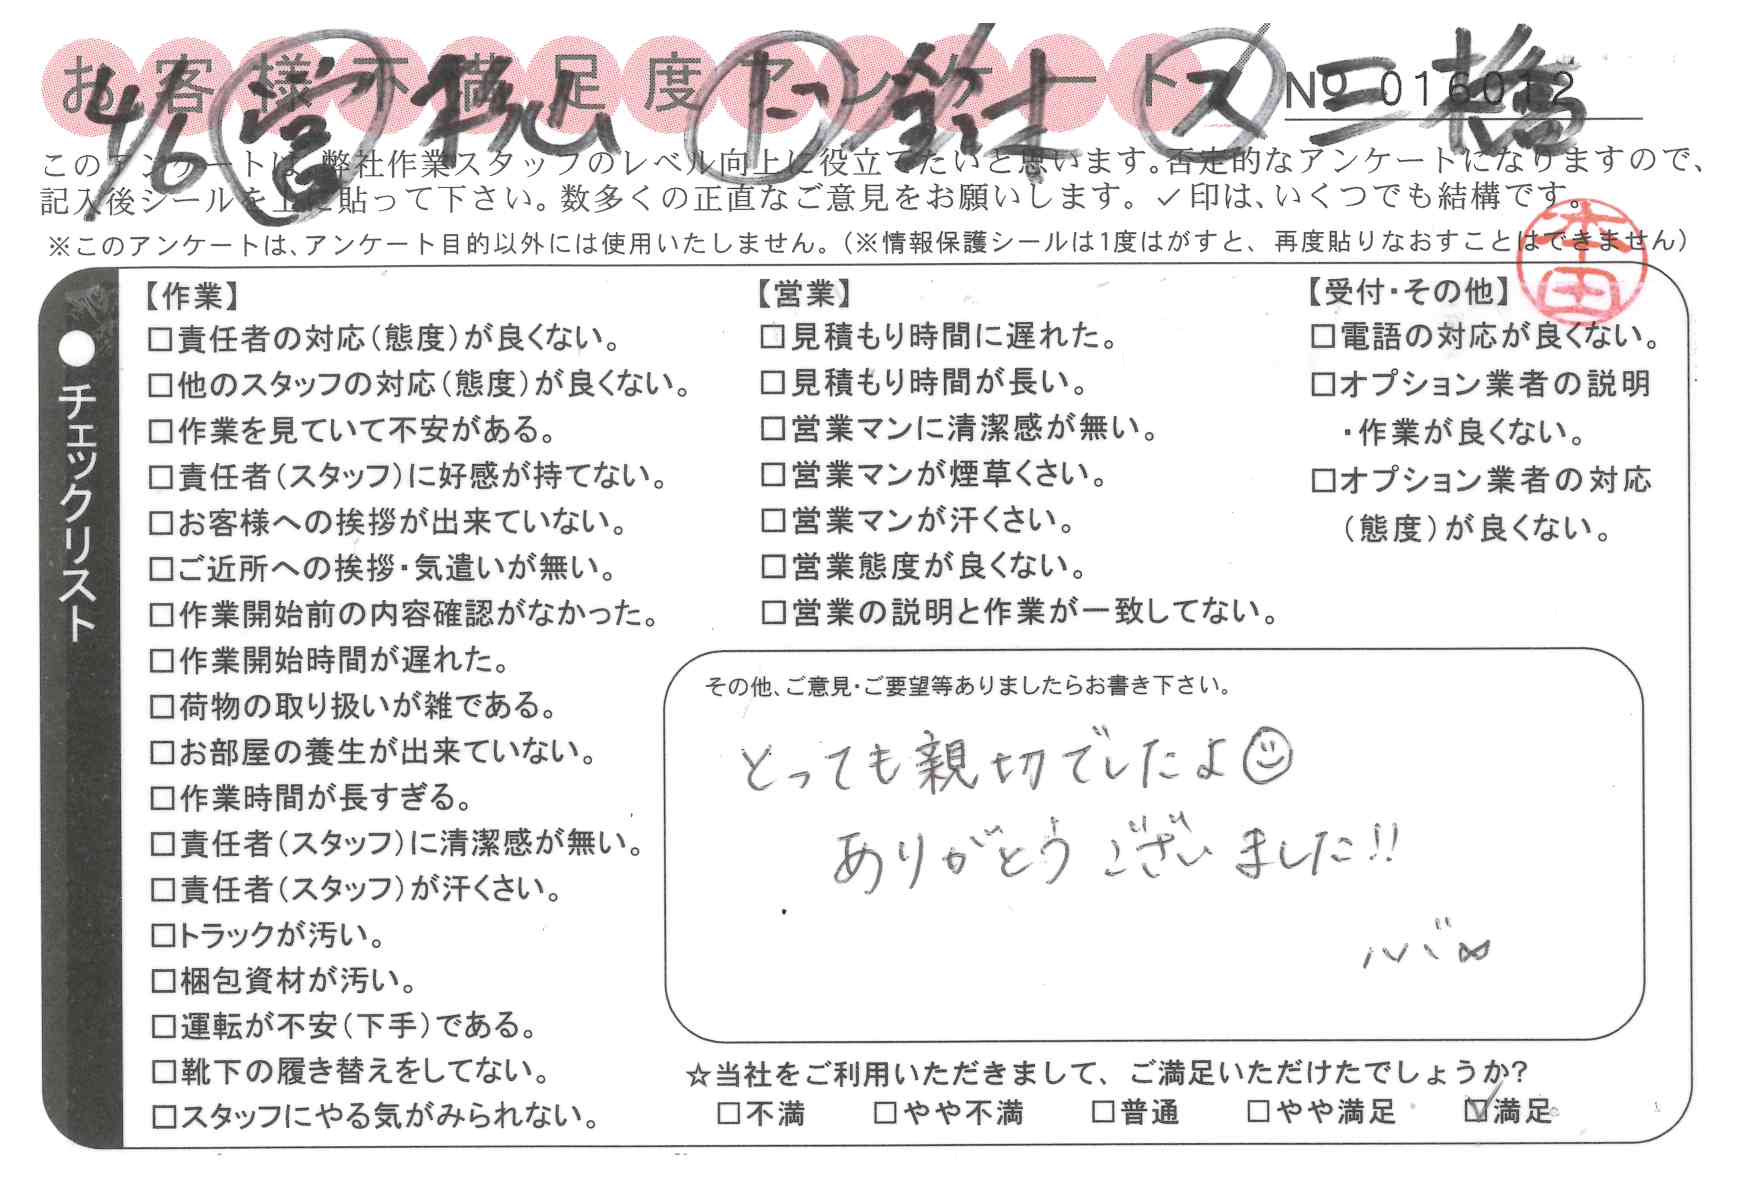 お客様不満足度アンケート
4/6 営 秋山 た 鈴社 ス 三橋
No 016012
このアンケートは、弊社作業スタッフのレベル向上に役立てたいと思います。否定的なアンケートになりますので、
記入後シールを上に貼って下さい。数多くの正直なご意見をお願いします。✓印は、いくつでも結構です。
※このアンケートは、アンケート目的以外には使用いたしません。(※情報保護シールは1度はがすと、再度貼りなおすことはできません)
本田
●チェックリスト
【作業】
□責任者の対応(態度)が良くない。
□他のスタッフの対応(態度)が良くない。
□作業を見ていて不安がある。
□責任者(スタッフ)に好感が持てない。
□お客様への挨拶が出来ていない。
□ご近所への挨拶・気遣いが無い。
□作業開始前の内容確認がなかった。
□作業開始時間が遅れた。
□荷物の取り扱いが雑である。
□お部屋の養生が出来ていない。
□作業時間が長すぎる。
□責任者(スタッフ)に清潔感が無い。
□責任者(スタッフ)が汗くさい。
□トラックが汚い。
□梱包資材が汚い。
□運転が不安(下手)である。
□靴下の履き替えをしてない。
□スタッフにやる気がみられない。
【営業】
□見積もり時間に遅れた。
□見積もり時間が長い。
□営業マンに清潔感が無い。
□営業マンが煙草くさい。
□営業マンが汗くさい。
□営業態度が良くない。
□営業の説明と作業が一致してない。
【受付・その他】
□電話の対応が良くない。
□オプション業者の説明
・作業が良くない。
□オプション業者の対応
(態度)が良くない。
その他、ご意見・ご要望等ありましたらお書き下さい。
とっても親切でしたよ☺
ありがとうございました!!
☆当社をご利用いただきまして、ご満足いただけたでしょうか?
□不満 □やや不満 □普通 □やや満足 ☑満足